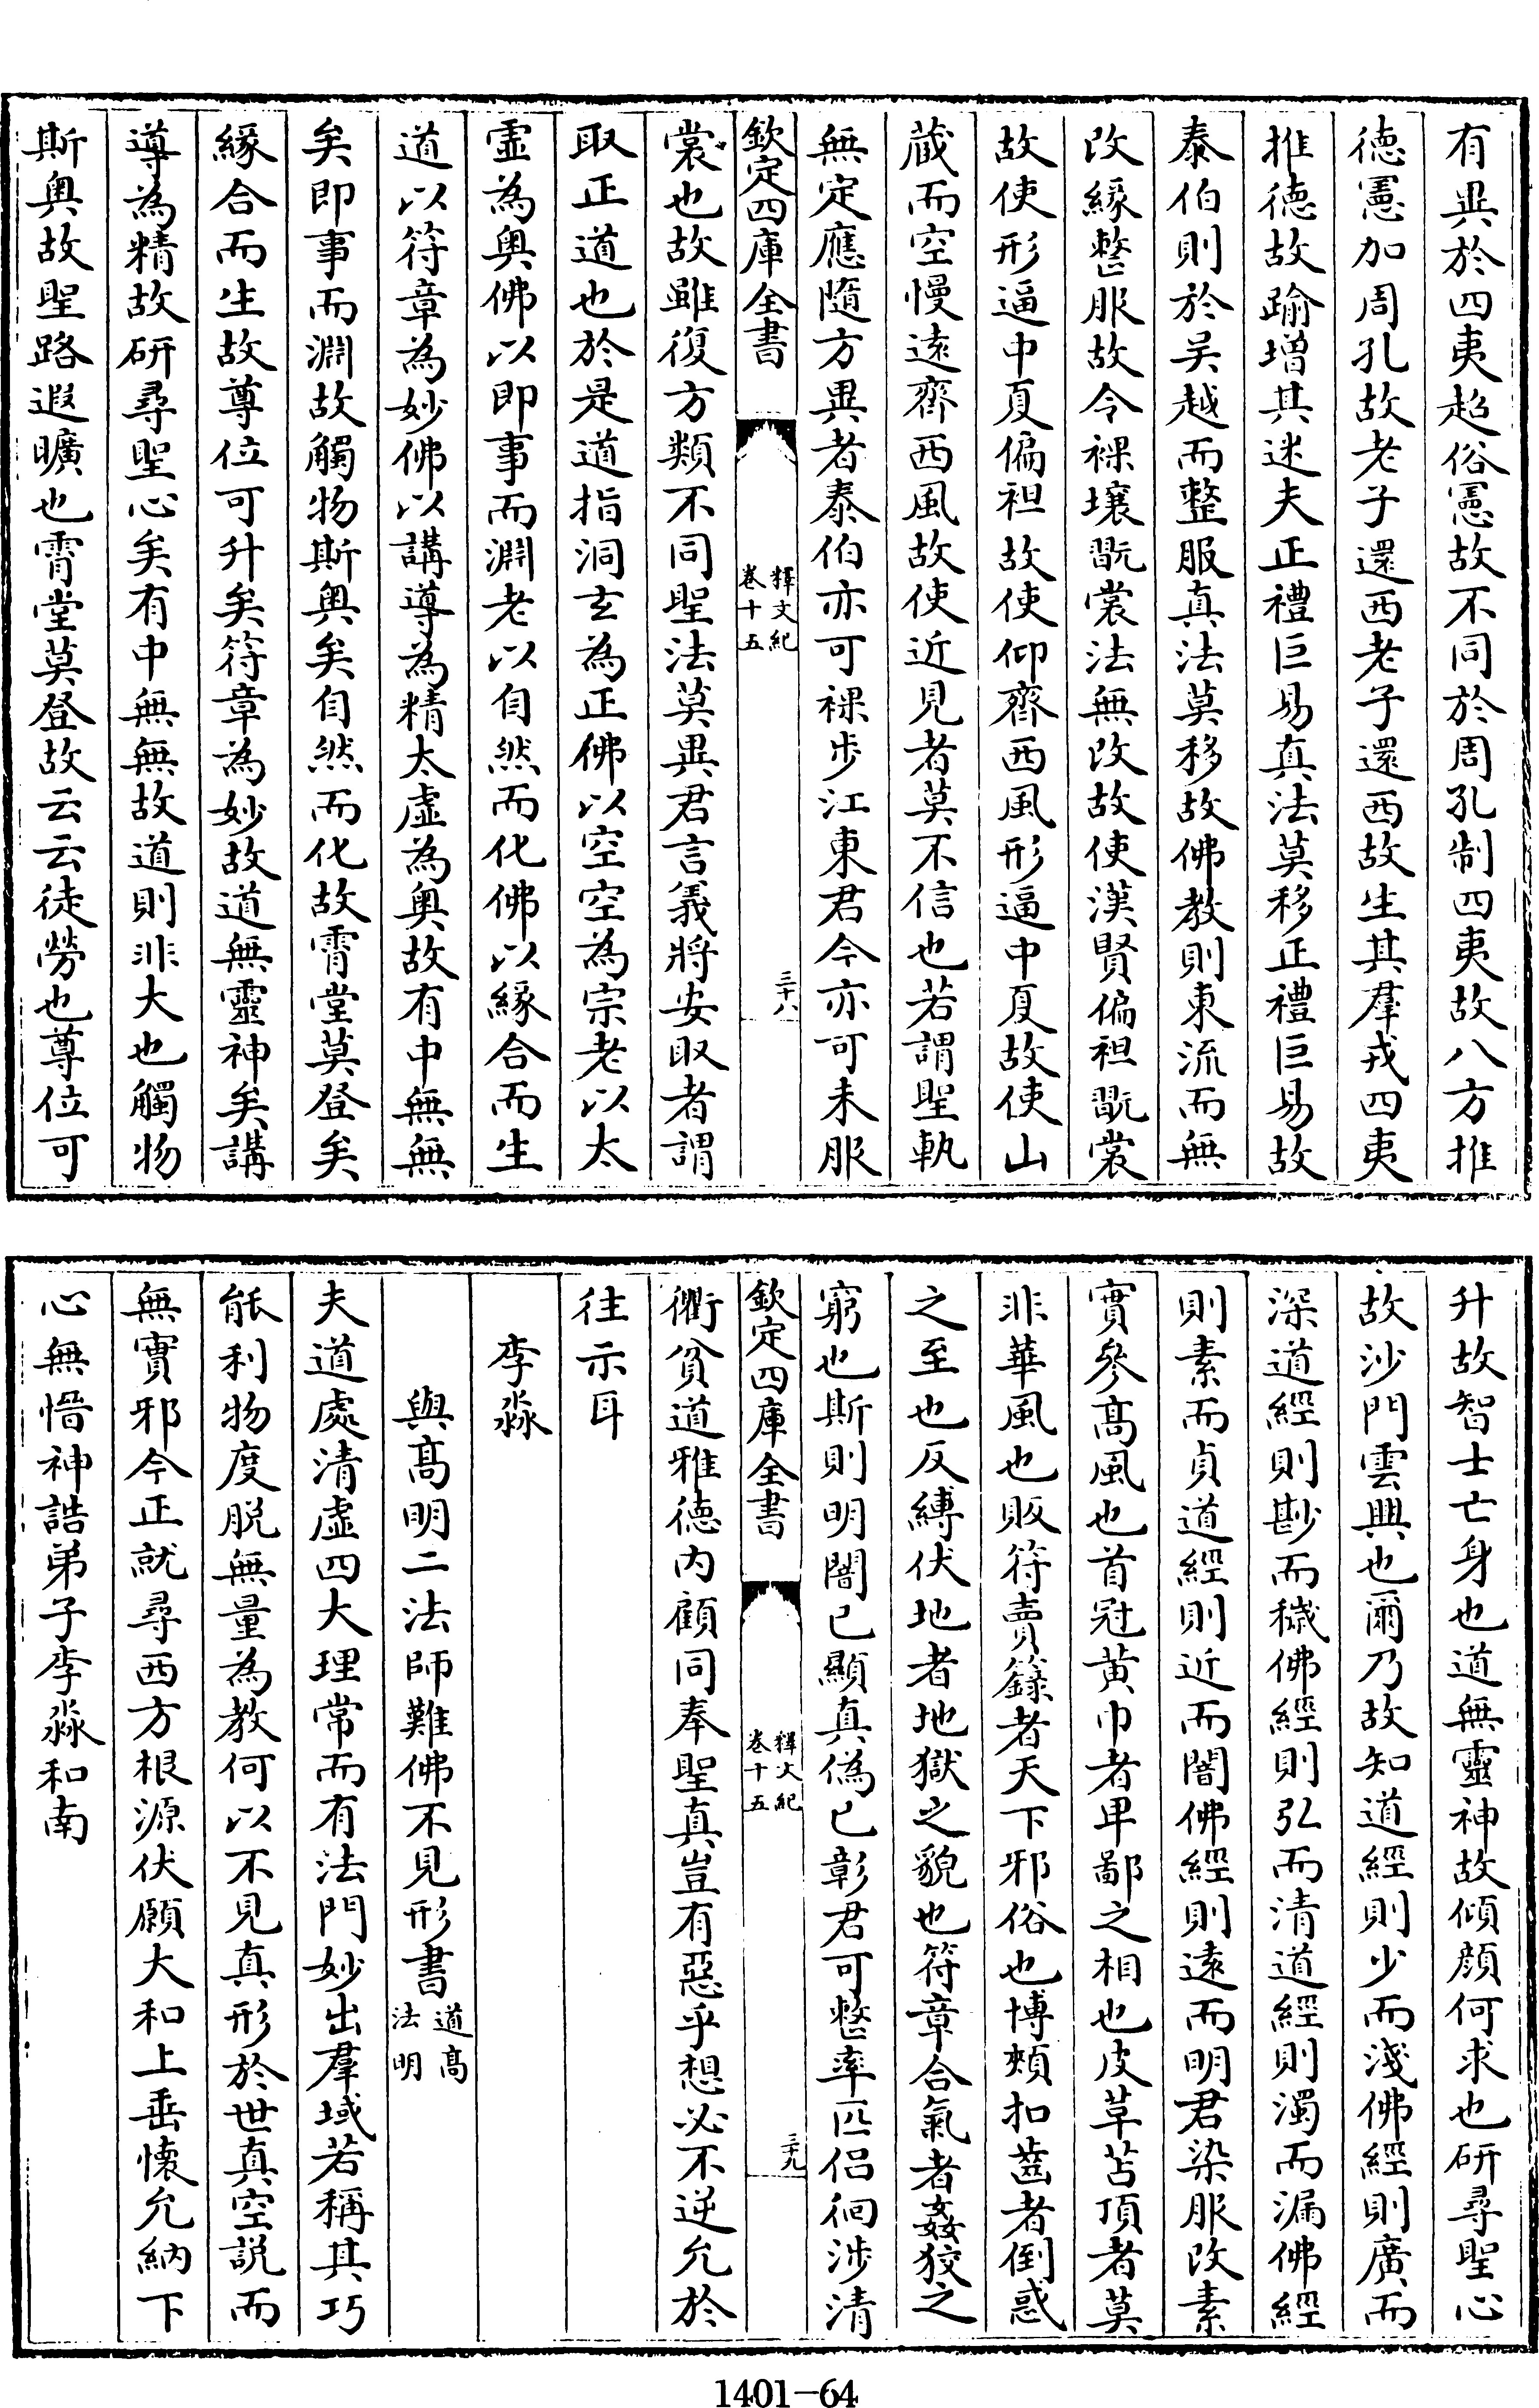 有異於四夷超俗憲故不同於周孔制四夷故八方推
德憲加周孔故老子還西老子還西故生其羣戎四夷
推德故踰增其迷夫正禮巨易真法莫移正禮巨易故
泰伯則於吳越而整服真法莫移故佛教則東流而無
改緣整服故令裸壤翫裳法無改故使漢賢偏袒翫裳
故使形逼中夏偏袒故使仰齊西風形逼中夏故使山
藏而空慢遠齊西風故使近見者莫不信也若謂聖軌
無定應隨方異者泰伯亦可裸步江東君今亦可未服
欽定四庫全書
釋文紀
卷十五
三十八
裳也故雖復方類不同聖法莫異君言義將安取者謂
取正道也於是道指洞玄為正佛以空空為宗老以太
虛為奧佛以即事而淵老以自然而化佛以緣合而生
道以符章為妙佛以講導為精太虛為奧故有中無無
矣即事而淵故觸物斯奧矣自然而化故霄堂莫登矣
緣合而生故尊位可升矣符章為妙故道無靈神矣講
導為精故研尋聖心矣有中無無故道則非大也觸物
斯奧故聖路遐曠也霄堂莫登故云云徒勞也尊位可
升故智士亡身也道無靈神故傾顏何求也研尋聖心
故沙門雲興也爾乃故知道經則少而淺佛經則廣而
深道經則尟而穢佛經則弘而清道經則濁而漏佛經
則素而貞道經則近而闇佛經則遠而明君染服改素
實參高風也首冠黃巾者卑鄙之相也皮革苫頂者莫
非華風也販符賣籙者天下邪俗也博頰扣齒者倒惑
之至也反縛伏地者地獄之貌也符章合氣者姦狡之
窮也斯則明闇已顯真偽已彰君可整率匹侶徊涉清
欽定四庫全書
釋文紀
卷十五
三十九
衢貧道雅德內顧同奉聖真豈有惡乎想必不逆允於
往示耳
李淼
與高明二法師難佛不見形書
道高
法明
夫道處清虛四大理常而有法門妙出羣域若稱其巧
能利物度脫無量為教何以不見真形於世真空說而
無實邪今正就尋西方根源伏願大和上垂懷允納下
心無惜神誥弟子李淼和南
1401—64